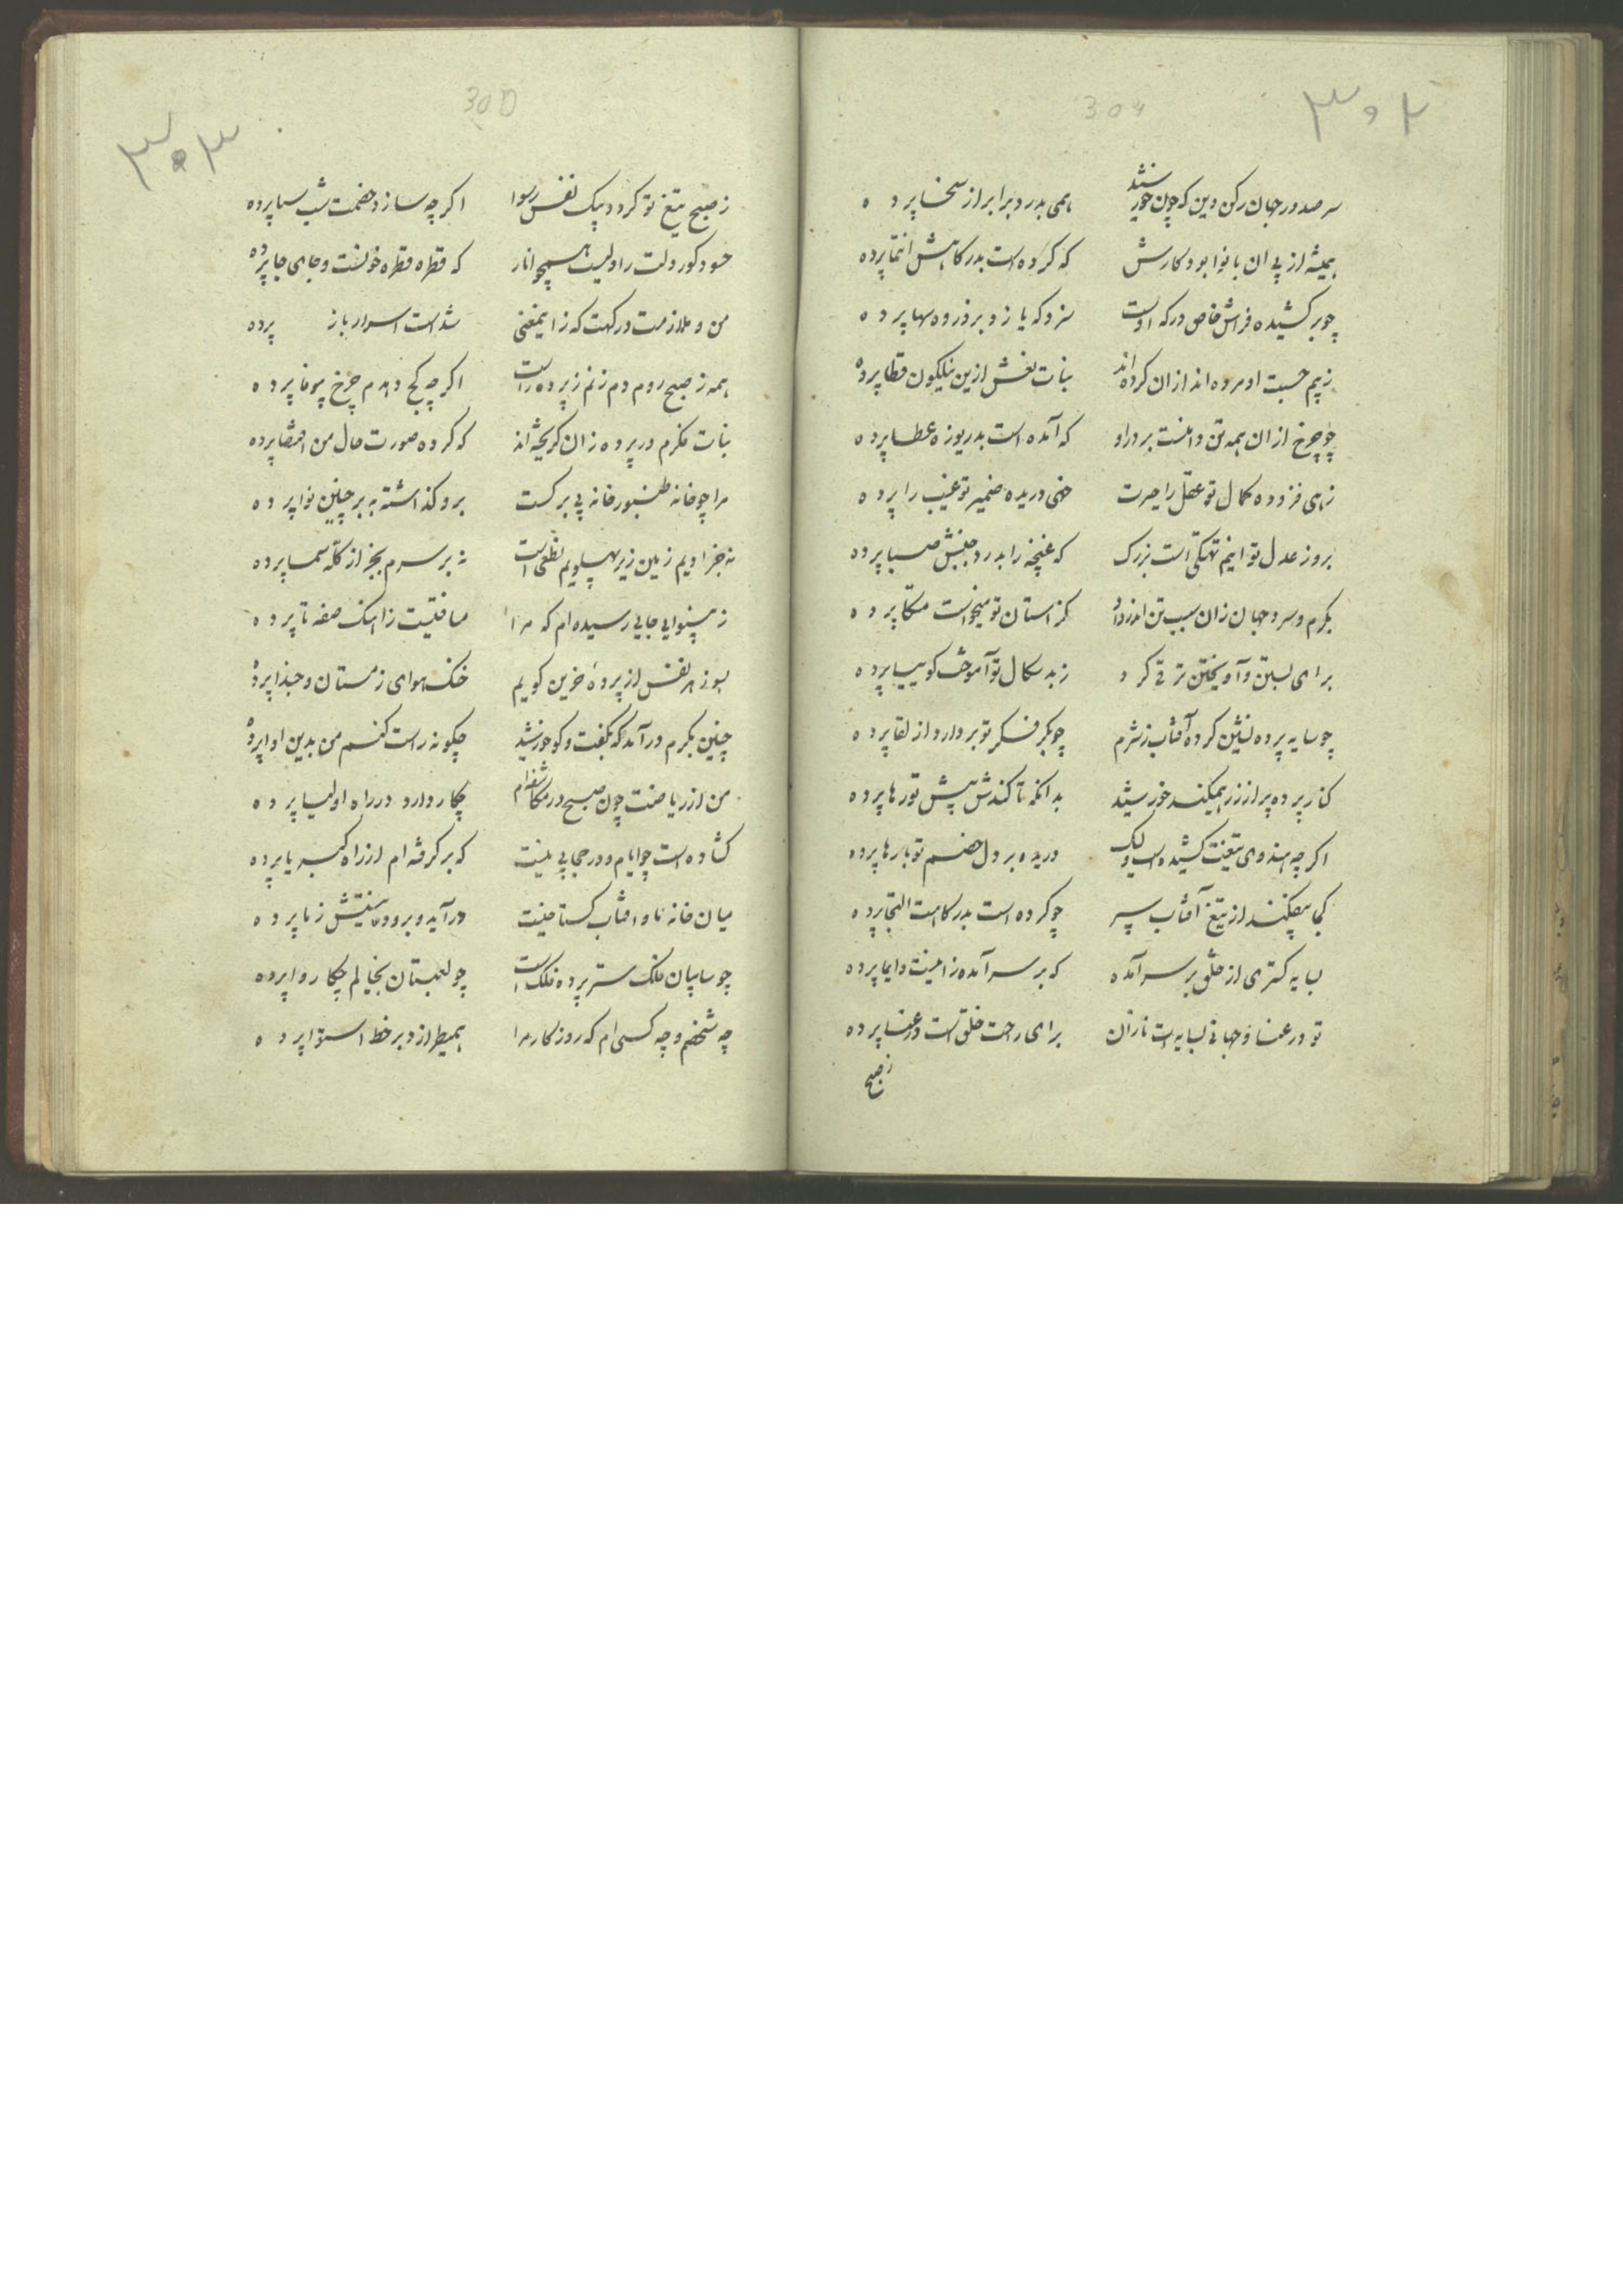 ۳۰۲
304
سر صدور جهان رکن دین که چون خورشید
همی بدرد برابر از سخا پرده
همیشه از پی آن با نوا بود کارش
که کرده است بدرکاهش انتما پرده
چو برکشیده فراش خاص درکه اوست
سزد که یازد بر ذروه سها پرده
زبیم حسبت او مرده اند ازان کرده اند
بنات نعش ازین نیلکون قطا پرده
چو چرخ ازان همه تن دامنست بر در او
که آمده است بدریوزه عطا پرده
زهی فزوده کمال تو عقل را حیرت
خهی دریده ضمیر تو غیب را پرده
بروز عدل تو اینم تهتکی است بزرک
که غنچه را بدرد جنبش صبا پرده
بکرم و سرد جهان زان سبب تن اندر داد
کز استان تو میخواست متکا پرده
برای بستن و آویختن ترقی کرد
زبد سکال تو آموخت کوییا پرده
چو سایه پرده نشین کرده آفتاب ز شرم
چو بکر فکر تو بردارد از لقا پرده
کنار پرده پر از زر همیکند خورشید
بدانکه تا کندش پیش تو رها پرده
اکرچه هندوی تیغت کشیده است ولیک
دریده بر دل خصم تو بارها پرده
کجا بیفکند از تیغ آفتاب سپر
چو کرده است بدرکاهت التجا پرده
بسایه کستری از خلق بر سر آمده
که بر سر آمده زاینست دایما پرده
تو در عنا و جهانی بسایه ات نازان
برای راحت خلق است در عنا پرده
ز صبح
۳۰۳
305
ز صبح تیغ تو کردد بیک نفس رسوا
اکرچه سازد خصمت شب سیا پرده
حسود کور دلت راولیست همچو انار
که قطره قطره خونست و جای جا پرده
من و ملازمت درکهت که زایمعنی
شد است اسرار باز پرده
همه ز صبح روم دم زنم ز پرده راست
اکرچه کج دهدم چرخ بیوفا پرده
بنات فکرم در پرده زان کریخته اند
که کرده صورت حال من اقتضا پرده
مرا چو خانه طنبور خانه بی برکست
برو کذاشته به بر چنین نوا پرده
نه جز ادیم زمین زیر پهلویم نطعی است
نه بر سرم بجز از کله سما پرده
ز بینوایی جایی رسیده ام که مرا
مسافتیست زاهنک صفه تا پرده
بسوز هر نفس از پرده حزین کویم
خنک هوای زمستان و حبذا پرده
چنین بکرم درآمد که بکفت و کو خورشید
چکونه راست کنم من بدین ادا پرده
من از ریاضت چون صبح در مکاشفه ام
چکار دارد در راه اولیا پرده
کشاده است چو ایام و در حجابی نیست
که برکرفته ام از راه کبریا پرده
میان خانه ما و افتاب کستاخیست
درآید و برود نیستش زما پرده
چو سایبان فلک ستر پرده فلک است
چو لعبتان بخیالم چکار و ا پرده
چه شخصم و چه کسی ام که روزکار مرا
همیطرازد بر خط استوا پرده